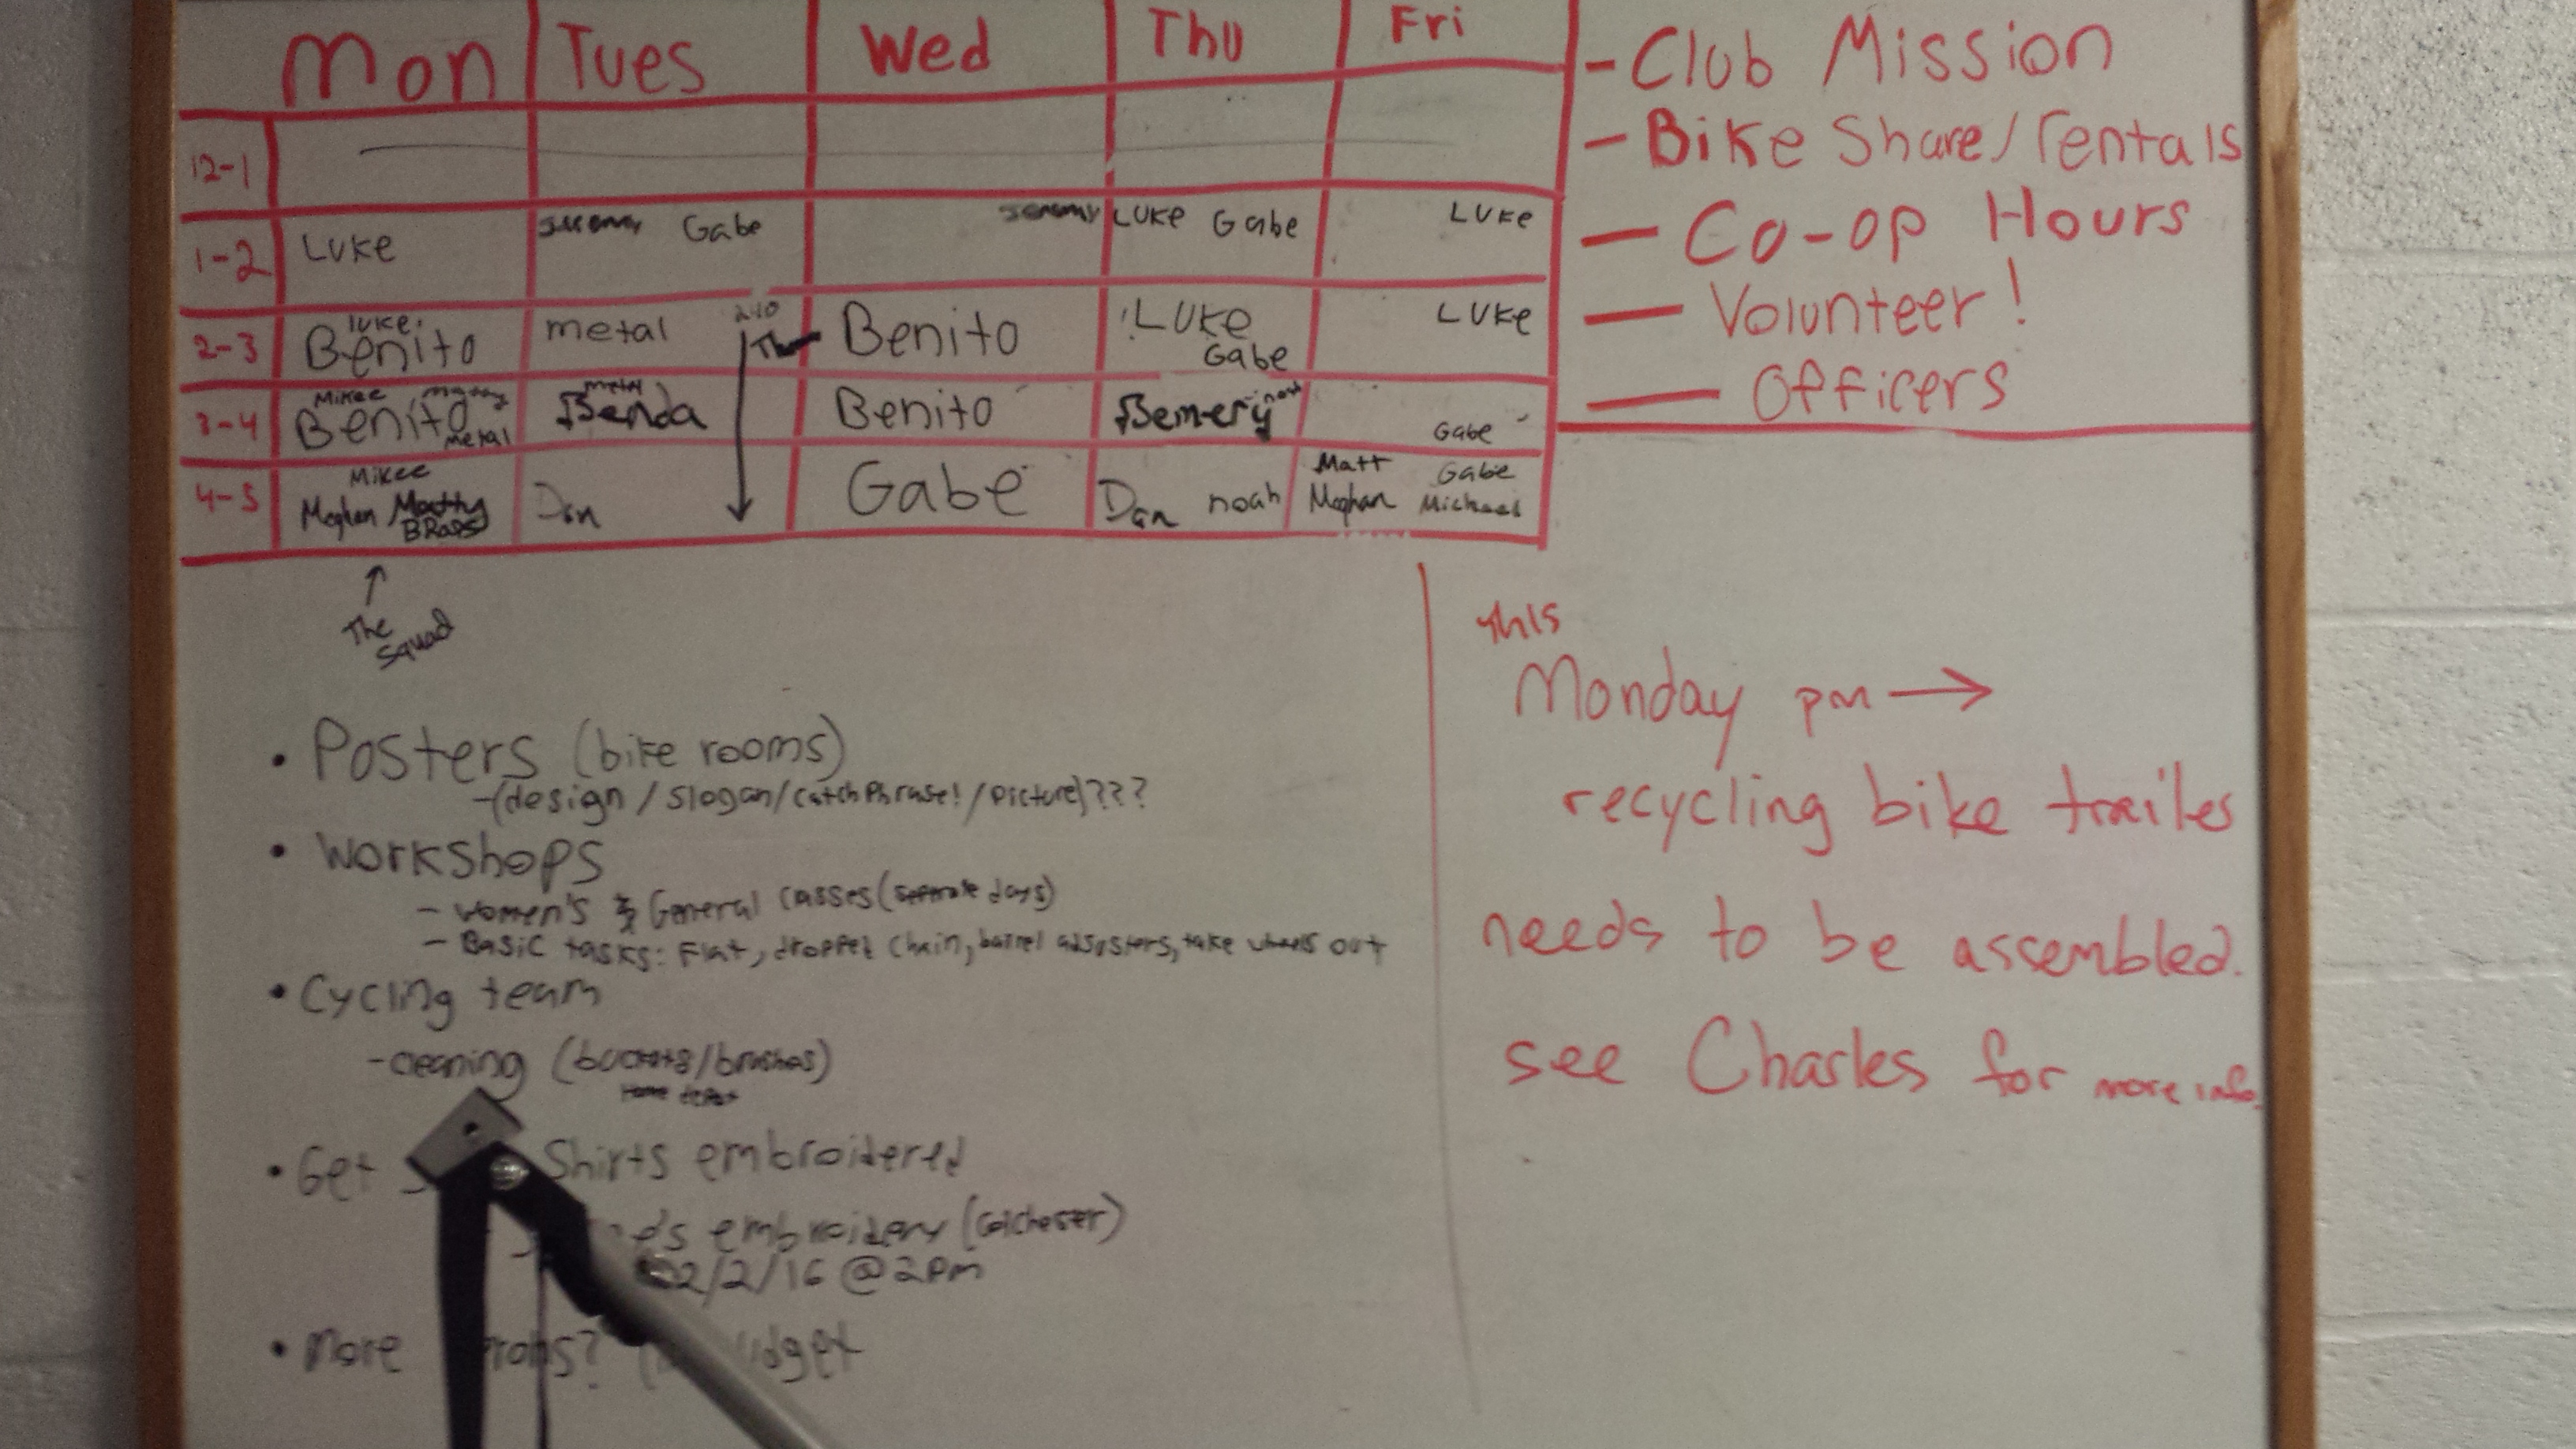 Mon Tues Wed Thu Fri
12-1
1-2 LUKE Gabe LUKE Gabe LUKE
2-3 luke. Benito metal Benito LUKE Gabe LUKE
3-4 Mikee Benito metal metal Benda Benito Gabe
4-5 Mikee Meghan Matty BRaps Dan Gabe Dan noah Matt Meghan Gabe Michael
↑
The
squad
- Club Mission
- Bike Share/rentals
- Co-op Hours
- Volunteer!
- Officers
• Posters (bike rooms)
-(design/slogan/catchPhrase!/picture)???
• Workshops
- women's & General casses (seperate days)
- Basic tasks: Flat, dropped chain, barrel adjusters, take wheels out
• Cycling team
-cleaning (buckets/brushes)
Home depot
• Get Shirts embroidered
embroidery (Colchester)
2/2/16 @ 2pm
• More
this
Monday pm →
recycling bike trailer
needs to be assembled.
see Charles for more info.